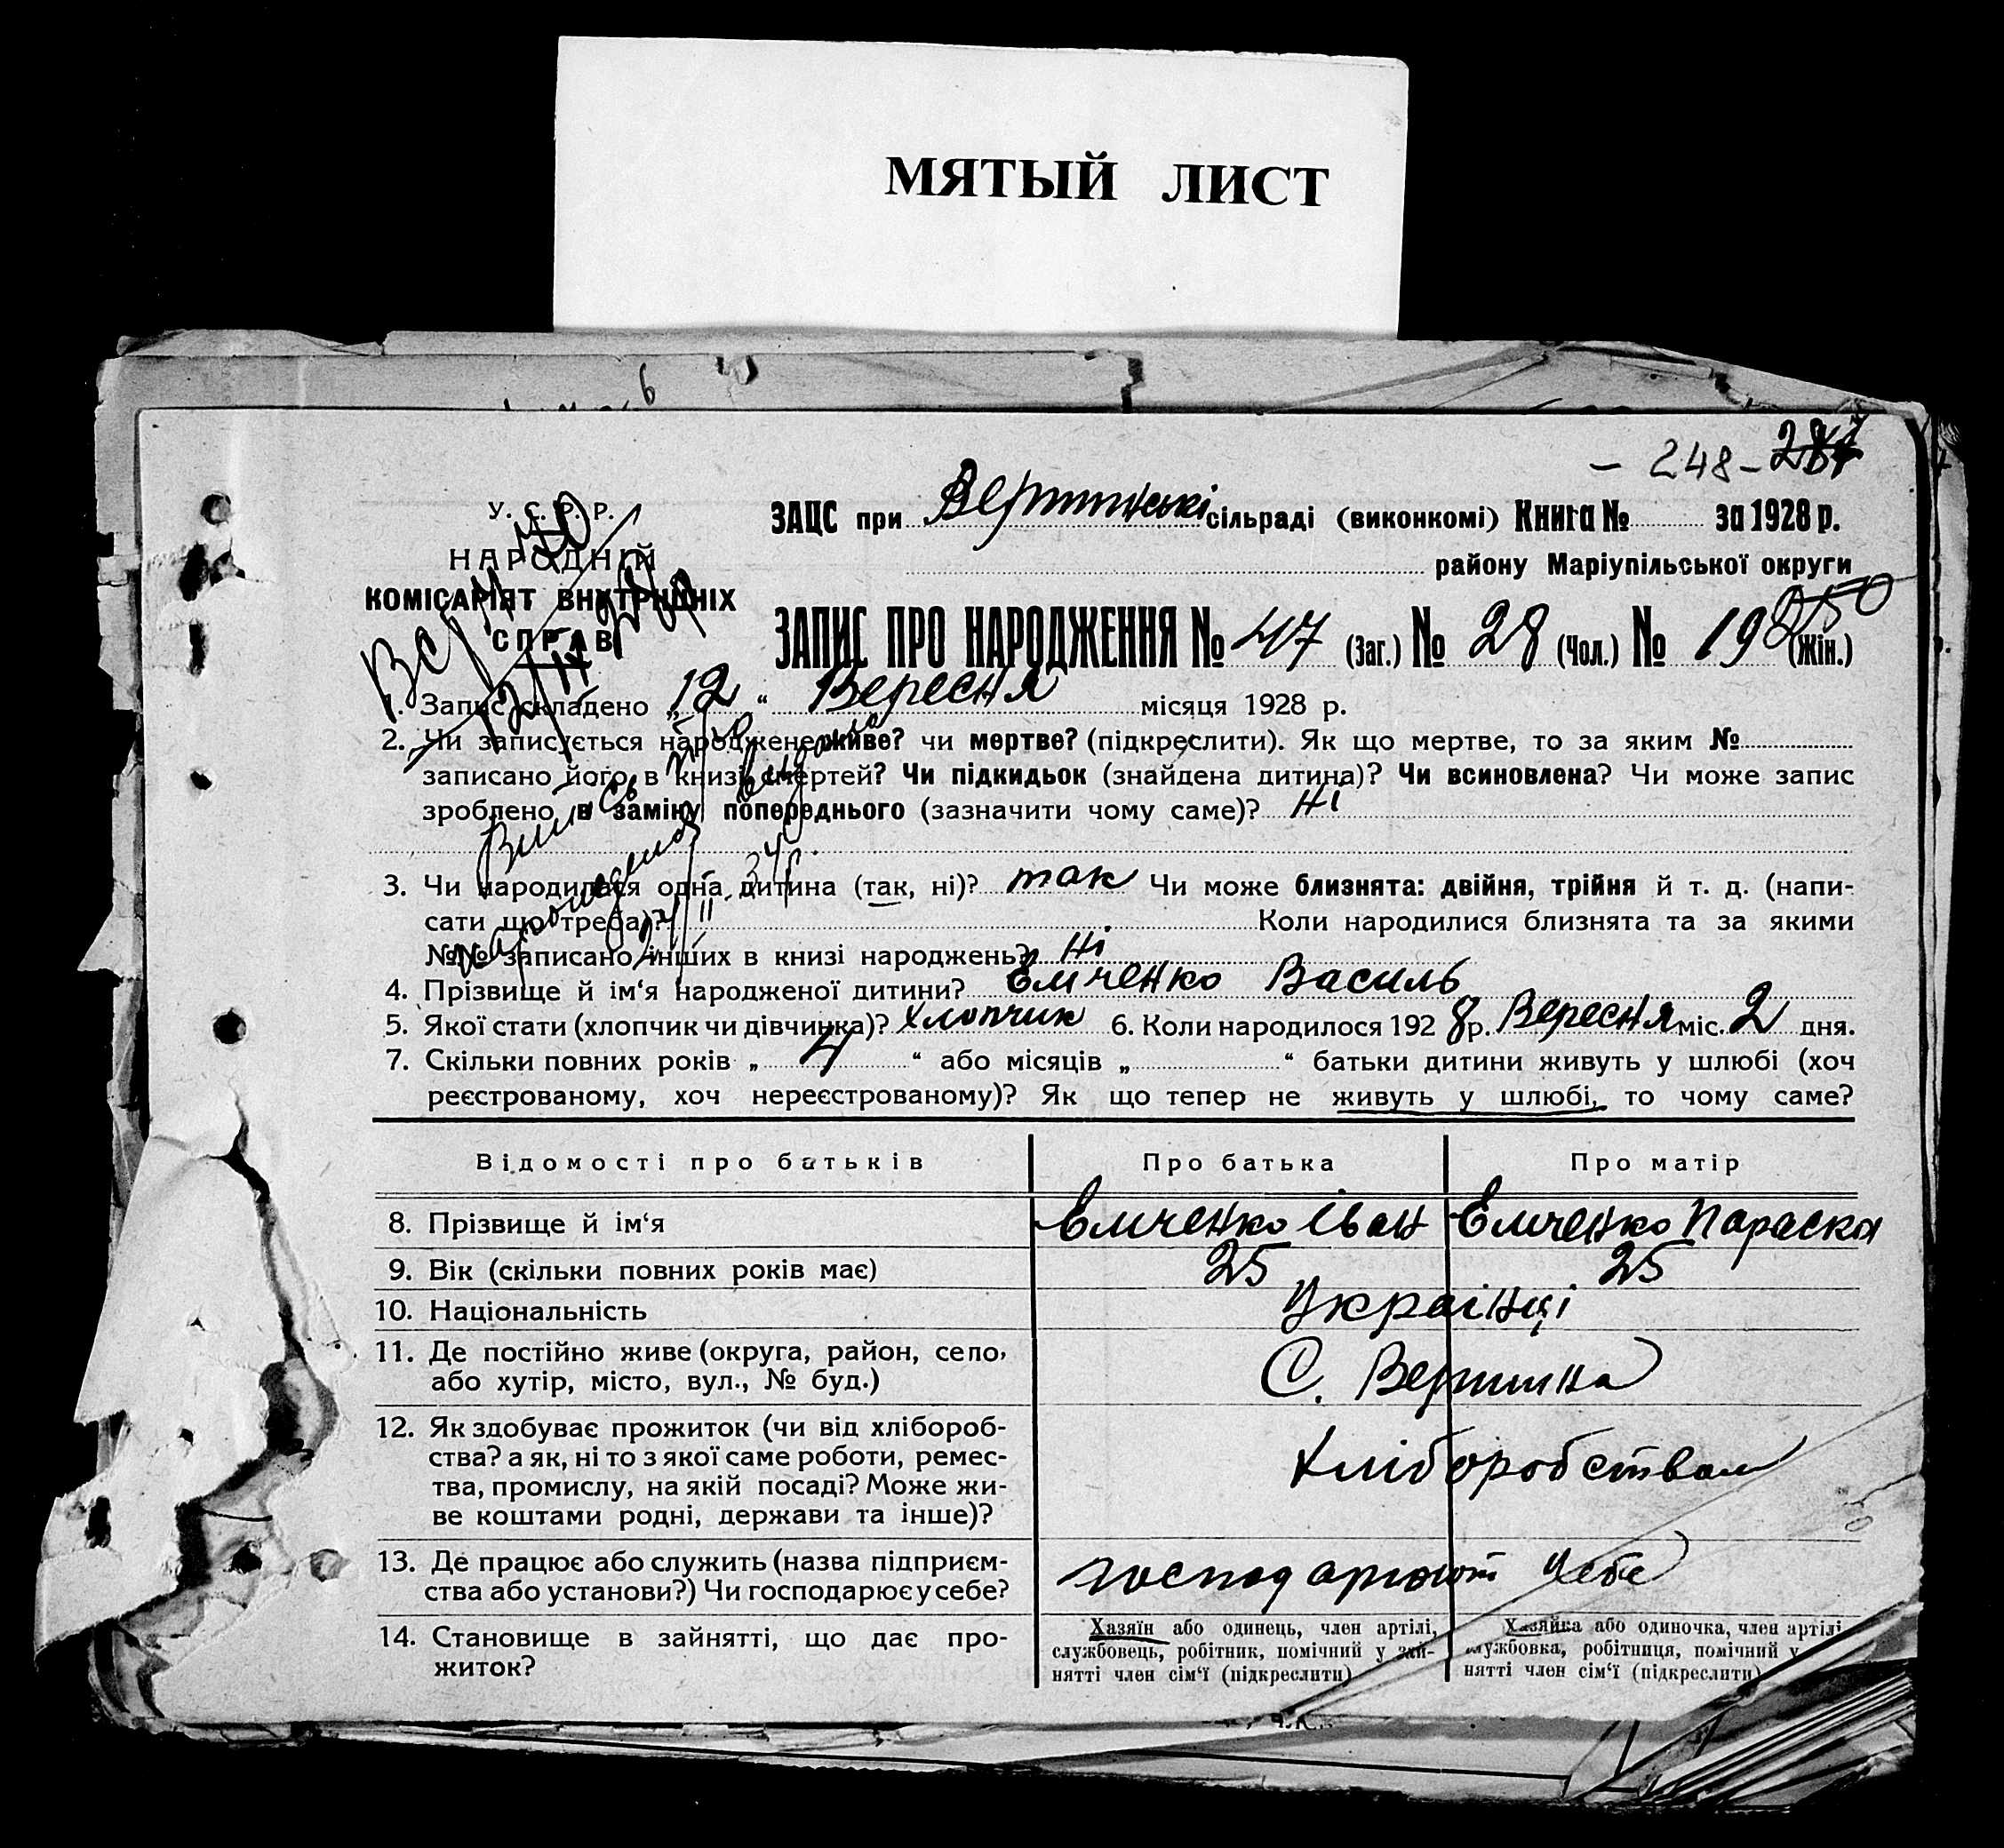 МЯТЫЙ ЛИСТ
6
– 248 –
У. С. Р. Р.
НАРОДНІЙ
КОМІСАРІЯТ ВНУТРІШНІХ
СПРАВ
ЗАЦС при сільраді (виконкомі) Книга № за 1928 р.
району Маріупільської округи
250
ЗАПИС ПРО НАРОДЖЕННЯ № 47 (Заг.) № 28 (Чол.) № 19 (Жін.)
1. Запис складено „ 12 “ Вересня місяця 1928 р.
2. Чи записується народжене живе? чи мертве? (підкреслити). Як що мертве, то за яким №
записано його в книзі смертей? Чи підкидьок (знайдена дитина)? Чи всиновлена? Чи може запис
зроблено в заміну попереднього (зазначити чому саме)? Ні
3. Чи народилася одна дитина (так, ні)? так Чи може близнята: двійня, трійня й т. д. (напи-
сати що треба)? Коли народилися близнята та за якими
№№ записано інших в книзі народжень? Ні
4. Прізвище й ім‘я народженої дитини? Ємченко Василь
5. Якої стати (хлопчик чи дівчинка)? хлопчик 6. Коли народилося 192 8 р. Вересня міс. 2 дня.
7. Скільки повних років „ 4 “ або місяців „ “ батьки дитини живуть у шлюбі (хоч
реєстрованому, хоч нереєстрованому)? Як що тепер не живуть у шлюбі, то чому саме?
Відомості про батьків Про батька Про матір
8. Прізвище й ім‘я Ємченко Іван Ємченко Параска
9. Вік (скільки повних років має) 25 25
10. Національність Українці
11. Де постійно живе (округа, район, село, С.
або хутір, місто, вул., № буд.)
12. Як здобуває прожиток (чи від хлібороб-
ства? а як, ні то з якої саме роботи, ремес- Хліборобством
тва, промислу, на якій посаді? Може жи-
ве коштами родні, держави та інше)?
13. Де працює або служить (назва підприєм-
ства або установи?) Чи господарює у себе? господарюют У себе
14. Становище в зайнятті, що дає про-
житок?
Хазяїн або одинець, член артілі,
службовець, робітник, помічний у зай-
нятті член сім‘ї (підкреслити)
Хазяйка або одиночка, член артілі
службовка, робітниця, помічний у
нятті член сім‘ї (підкреслити)
Випись
народжения